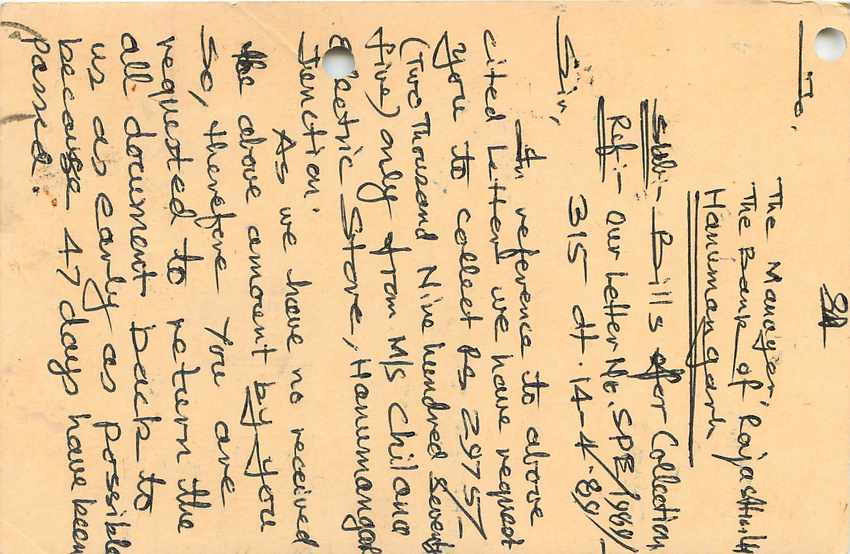 To,
The Manager,
The Bank of Rajasthan
Hanumangarh
Sub:- Bills for Collection
Ref:- Our Letter No. SPB/1969/
315 dt. 14-4-89/-
Sir,
In reference to above
cited Letter we have request
you to collect Rs 2975/-
(Two Thousand Nine hundred Seventy
five) only from M/s Chilana
Electric Store, Hanumangar
Junction.
As we have no received
the above amount by you
So, therefore you are
requested to return the
all document back to
us as early as possible
because 47 days have been
passed.